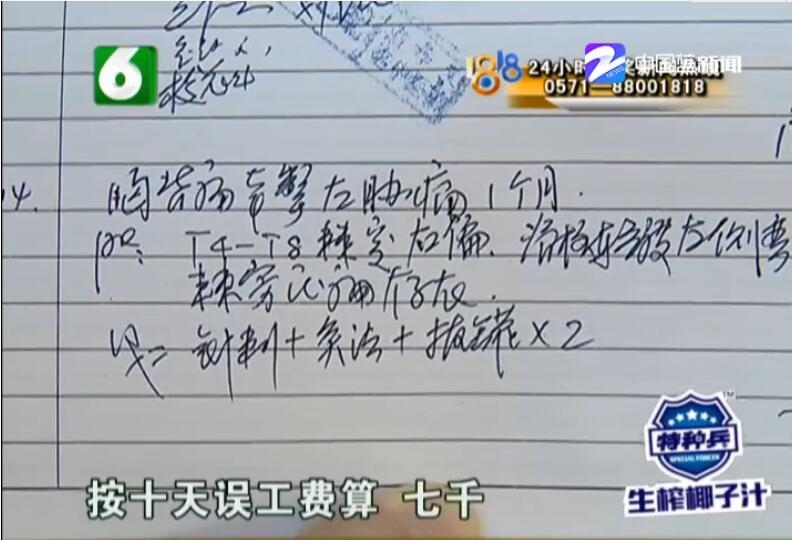 6
1818
24小时
中国蓝新闻
NEWS
0571—88001818
14.
胸背痛牵掣左肋痛1个月.
pe: T4-T8棘突右偏. 左侧弯
棘旁压痛存在.
针刺+灸法+拔罐×2
特种兵
TM
SPECIAL FORCES
生榨椰子汁
按十天误工费算 七千